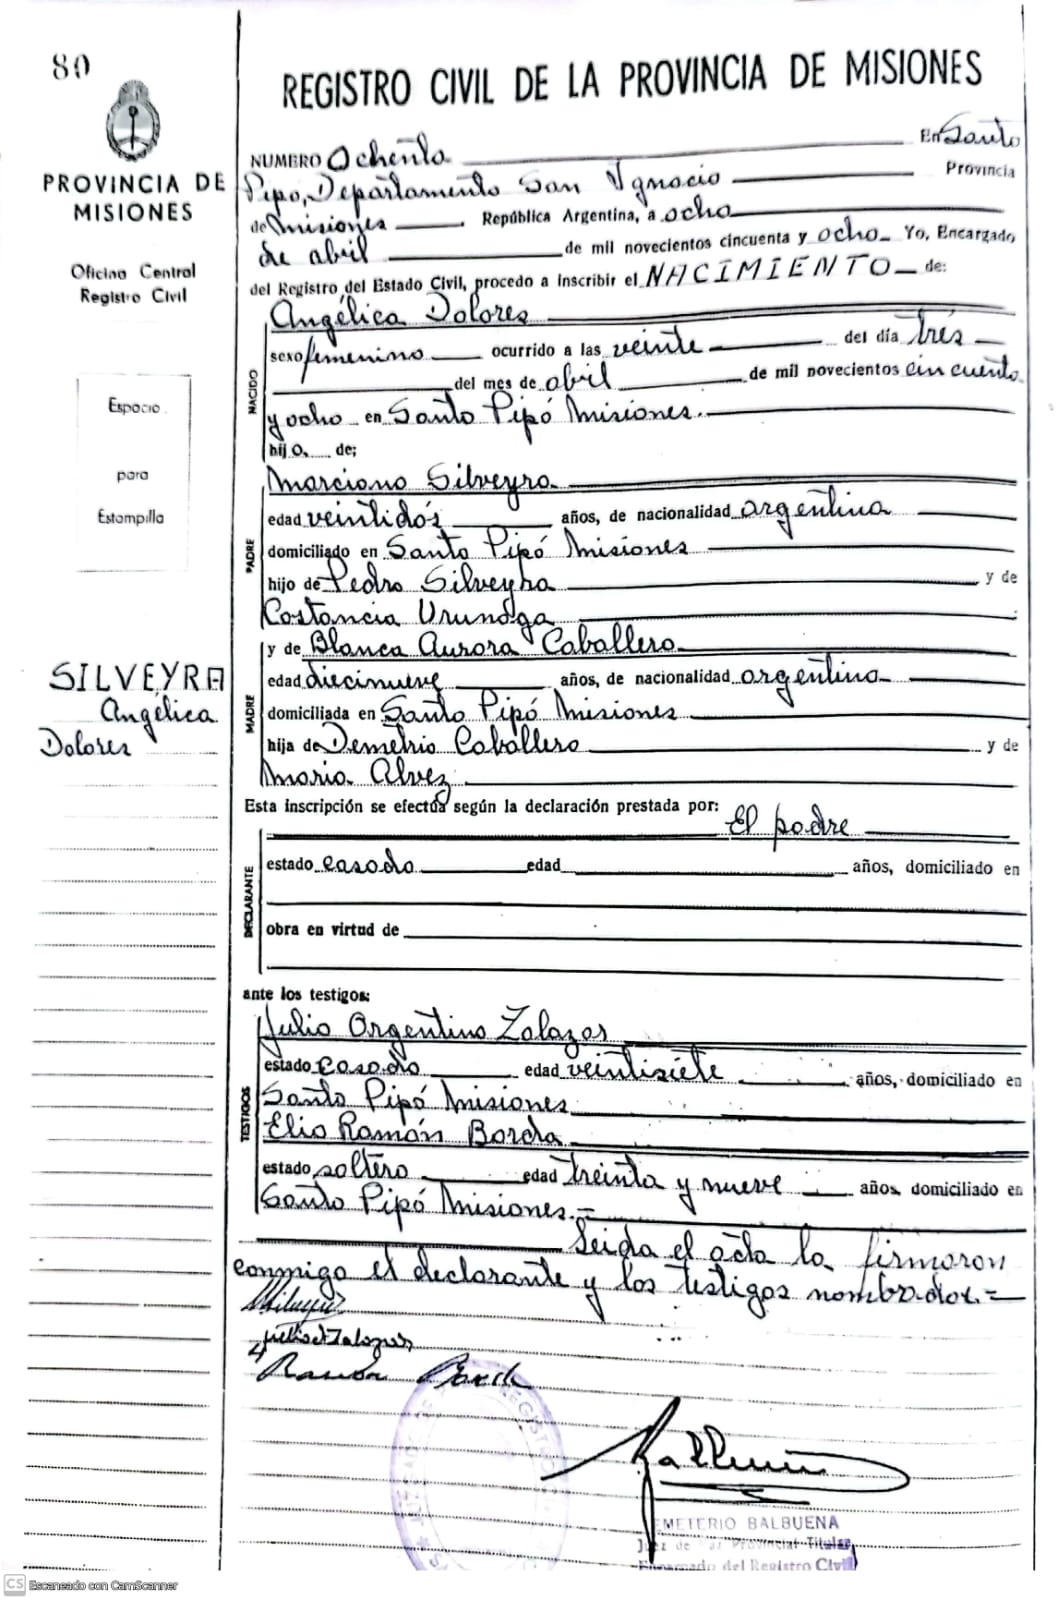 80
PROVINCIA DE
MISIONES
Oficina Central
Registro Civil
Espacio
para
Estampilla
SILVEYRA
Angélica
Dolores
REGISTRO CIVIL DE LA PROVINCIA DE MISIONES
NUMERO Ochenta En Santo
Pipó, Departamento San Ygnacio Provincia
de Misiones República Argentina, a ocho
de abril de mil novecientos cincuenta y ocho Yo, Encargado
del Registro del Estado Civil, procedo a inscribir el NACIMIENTO de:
NACIDO
Angélica Dolores
sexo femenino ocurrido a las veinte del día tres
del mes de abril de mil novecientos cincuenta
y ocho en Santo Pipó Misiones.
hijo. de;
PADRE
Marciano Silveyra
edad veintidós años, de nacionalidad argentina
domiciliado en Santo Pipó Misiones
hijo de Pedro Silveyra y de
Costancia Urunaga
MADRE
y de Blanca Aurora Caballero
edad diecinueve años, de nacionalidad argentina
domiciliada en Santo Pipó Misiones
hija de Demetrio Caballero y de
Maria Alvez
Esta inscripción se efectúa según la declaración prestada por: El padre
DECLARANTE
estado casado edad años, domiciliado en
obra en virtud de
ante los testigos:
TESTIGOS
Julio Argentino Zalazar
estado casado edad veintisiete años, domiciliado en
Santo Pipó Misiones
Elio Ramón Borda
estado soltero edad treinta y nueve años, domiciliado en
Santo Pipó Misiones.
Leida el acta la firmaron
conmigo el declarante y los testigos nombrados.
Ramón Borda
EMETERIO BALBUENA
Juez de Paz Provincial Titular
Encargado del Registro Civil
CS Escaneado con CamScanner